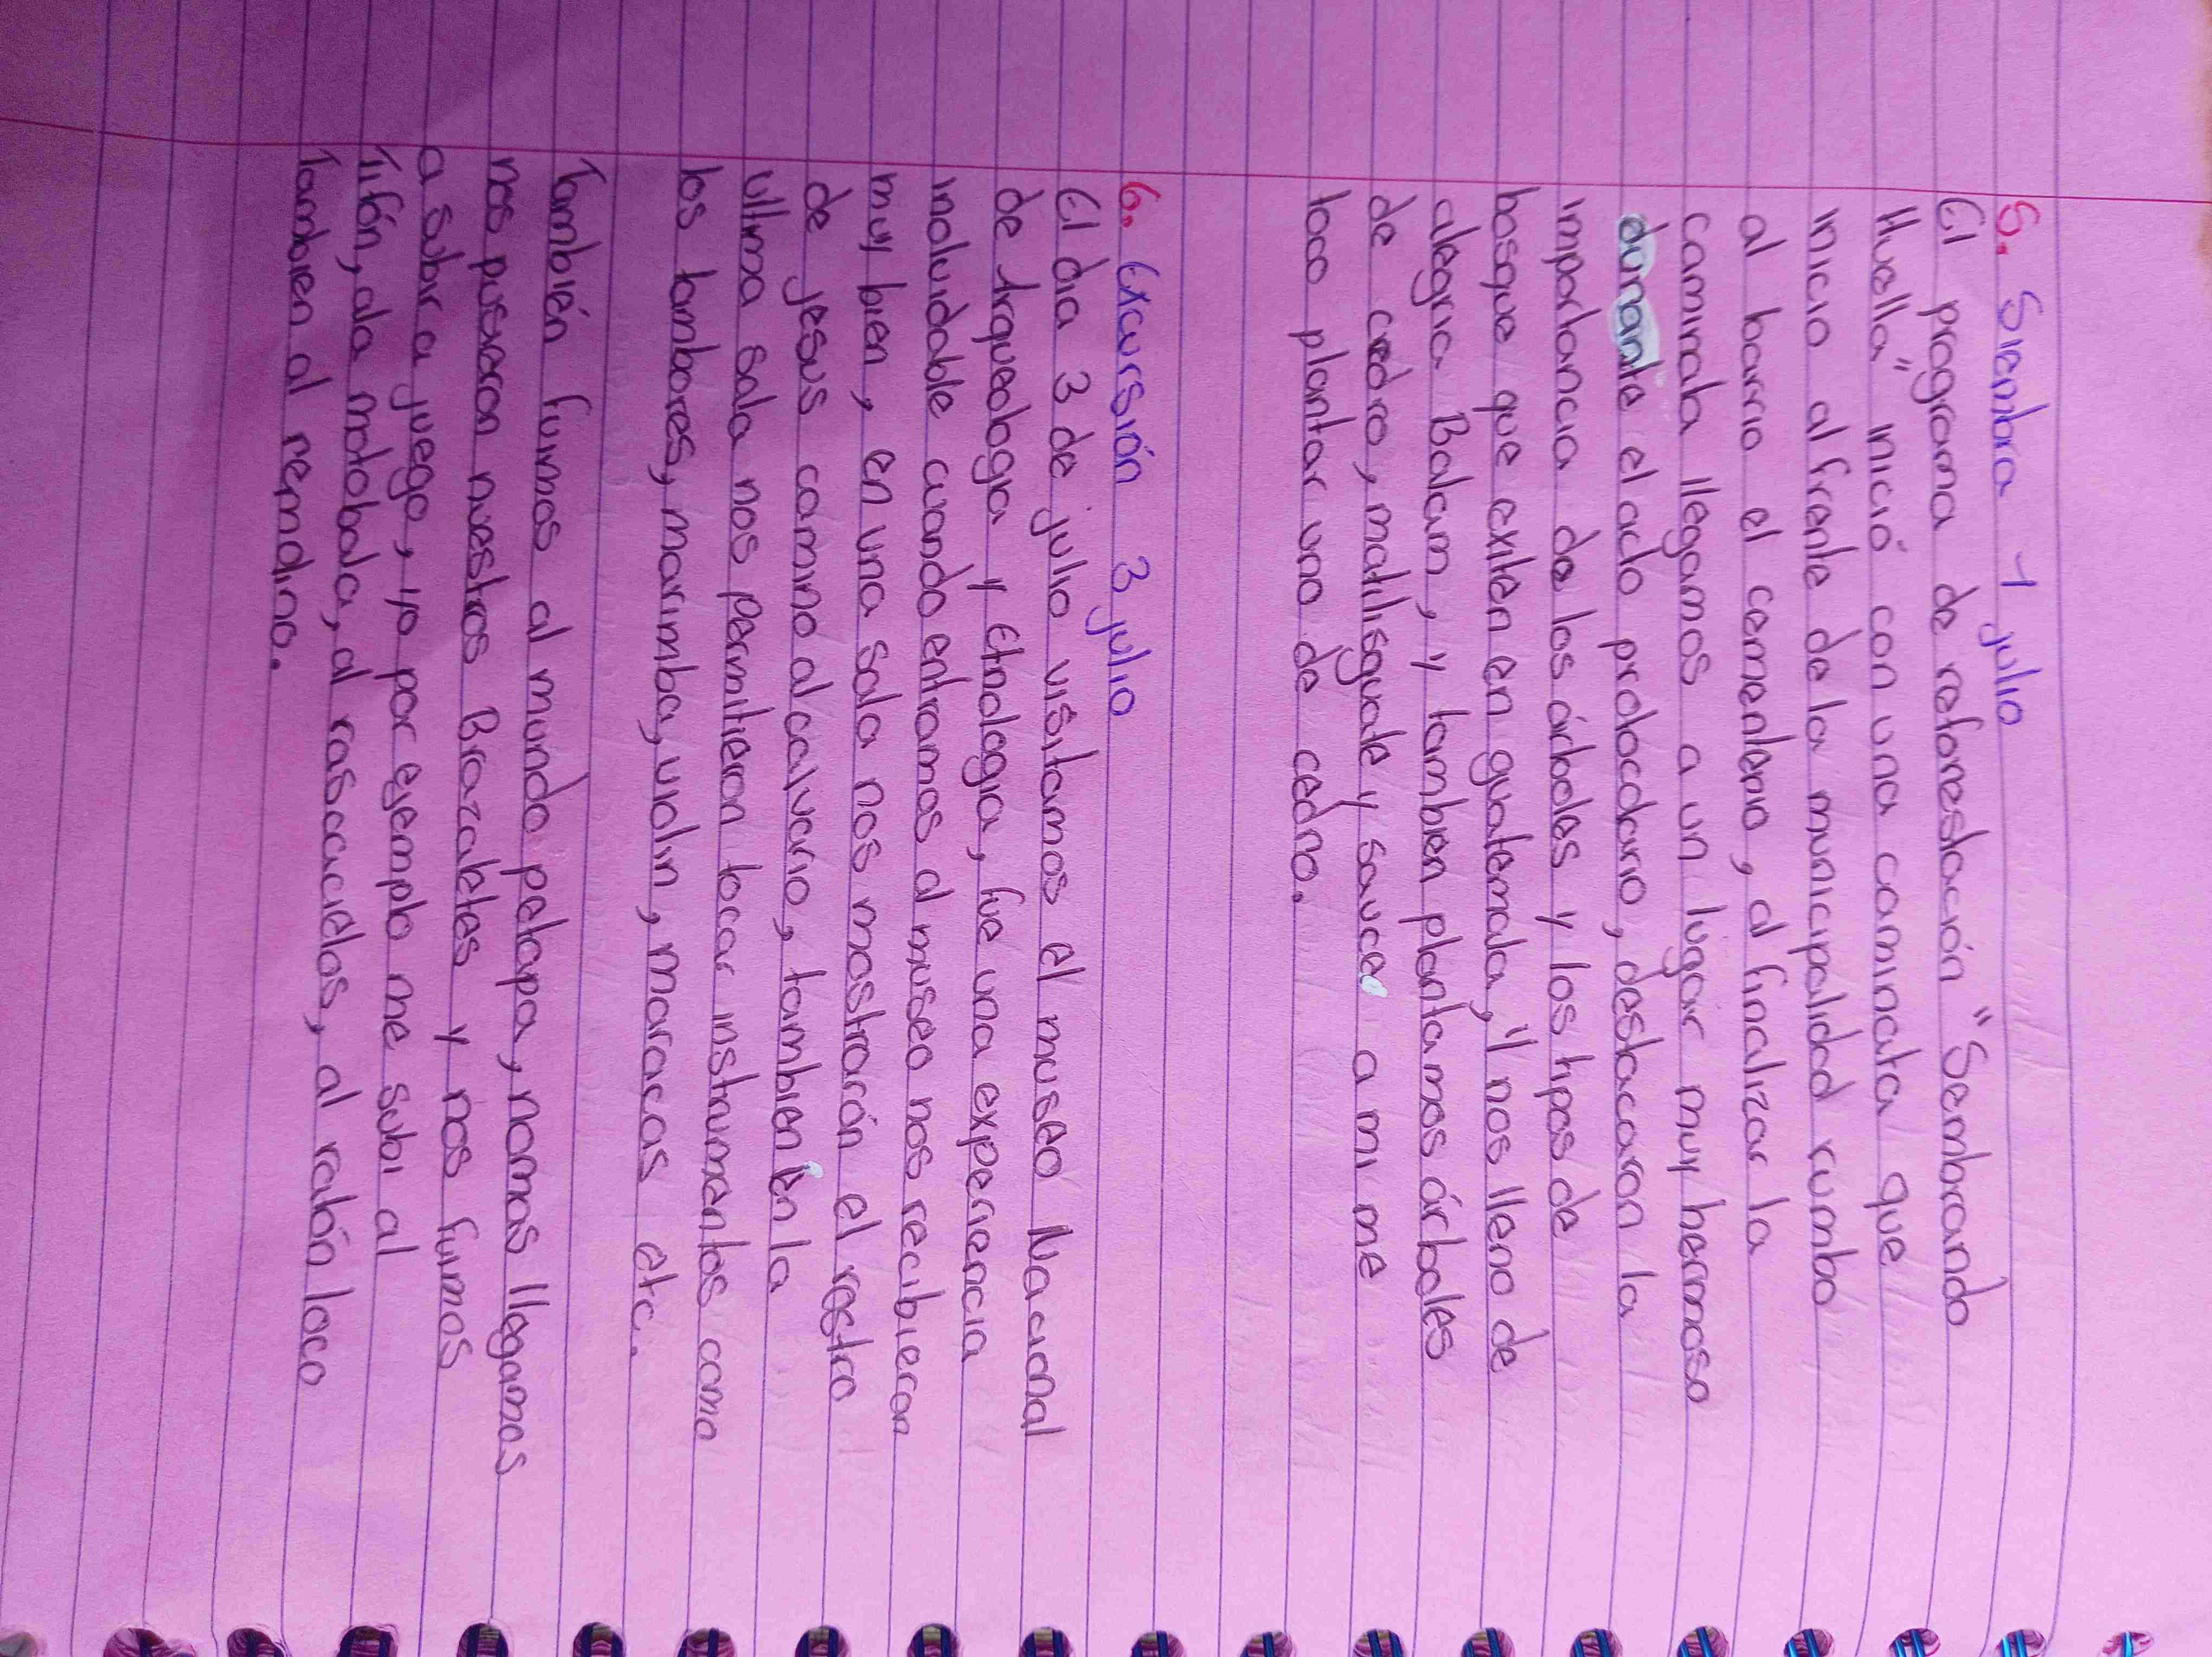 5. Siembra 1 julio
El programa de reforestación "Sembrando
Huella" inició con una caminata que
inicio al frente de la municipalidad rumbo
al barrio el cementerio, al finalizar la
caminata llegamos a un lugar muy hermoso
durante el acto protocolario, destacaron la
importancia de los árboles y los tipos de
bosque que exiten en guatemala, nos lleno de
alegria Balam, y tambien plantamos árboles
de cedro, matilisguate y sauce a mi me
toco plantar uno de cedro.
6. Excursión 3 julio
El dia 3 de julio visitamos el museo Nacional
de Arqueologia y Etnologia, fue una experiencia
inolvidable cuando entramos al museo nos recibieron
muy bien, en una sala nos mostrarón el rostro
de jesus camino al calvario, tambien en la
ultima sala nos permitieron tocar instrumentos como
los tambores, marimba, violin, maracas etc.
También fuimos al mundo petapa, nomas llegamos
nos pusieron nuestros Brazaletes y nos fuimos
a subir a juego, yo por ejemplo me subi al
Tifón, ala motobala, al rascacielos, al ratón loco
Tambien al remolino.